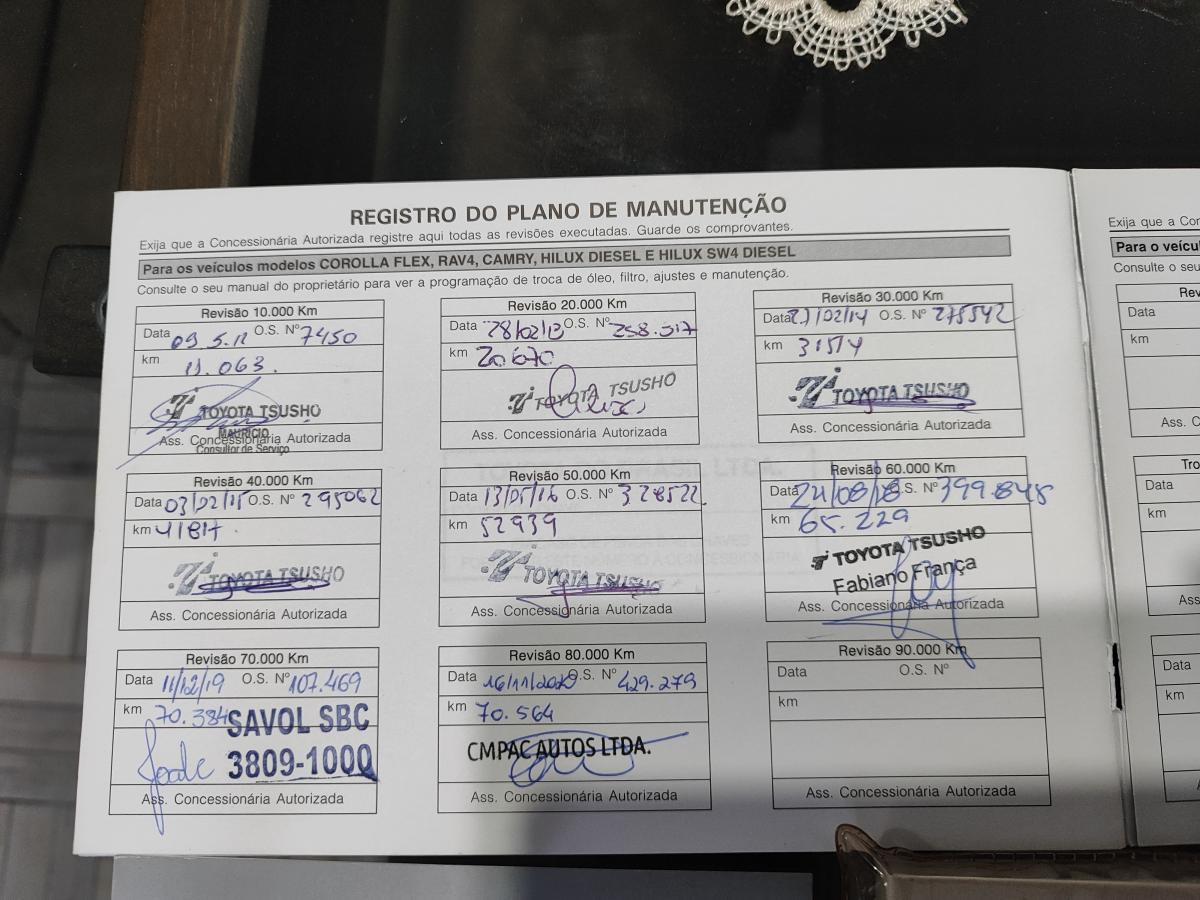 REGISTRO DO PLANO DE MANUTENÇÃO
Exija que a Concessionária Autorizada registre aqui todas as revisões executadas. Guarde os comprovantes.
Para os veículos modelos COROLLA FLEX, RAV4, CAMRY, HILUX DIESEL E HILUX SW4 DIESEL
Consulte o seu manual do proprietário para ver a programação de troca de óleo, filtro, ajustes e manutenção.
Revisão 10.000 Km
Data 09 5.11 O.S. Nº 7450
km 11.063.
TOYOTA TSUSHO
MAURICIO
Ass. Concessionária Autorizada
Consultor de Serviço
Revisão 20.000 Km
Data 28/02/13 O.S. Nº 258.517
km 20670
TOYOTA TSUSHO
Ass. Concessionária Autorizada
Revisão 30.000 Km
Data 27/02/14 O.S. Nº 275542
km 31514
TOYOTA TSUSHO
Ass. Concessionária Autorizada
Revisão 40.000 Km
Data 03/02/15 O.S. Nº 295062
km 41817.
TOYOTA TSUSHO
Ass. Concessionária Autorizada
Revisão 50.000 Km
Data 13/05/16 O.S. Nº 328522
km 52939
TOYOTA TSUSHO
Ass. Concessionária Autorizada
Revisão 60.000 Km
Data 24/08/18 O.S. Nº 399.848
km 65.229
TOYOTA TSUSHO
Fabiano França
Ass. Concessionária Autorizada
Revisão 70.000 Km
Data 11/12/19 O.S. Nº 107.469
km 70.384
SAVOL SBC
3809-1000
Ass. Concessionária Autorizada
Revisão 80.000 Km
Data 16/11/2020 O.S. Nº 429.279
km 70.564
CMPAC AUTOS LTDA.
Ass. Concessionária Autorizada
Revisão 90.000 Km
Data O.S. Nº
km
Ass. Concessionária Autorizada
Exija que a Co
Para o veícu
Consulte o seu
Data
km
Ass. C
Tro
Data
km
Ass
Data
km
Ass